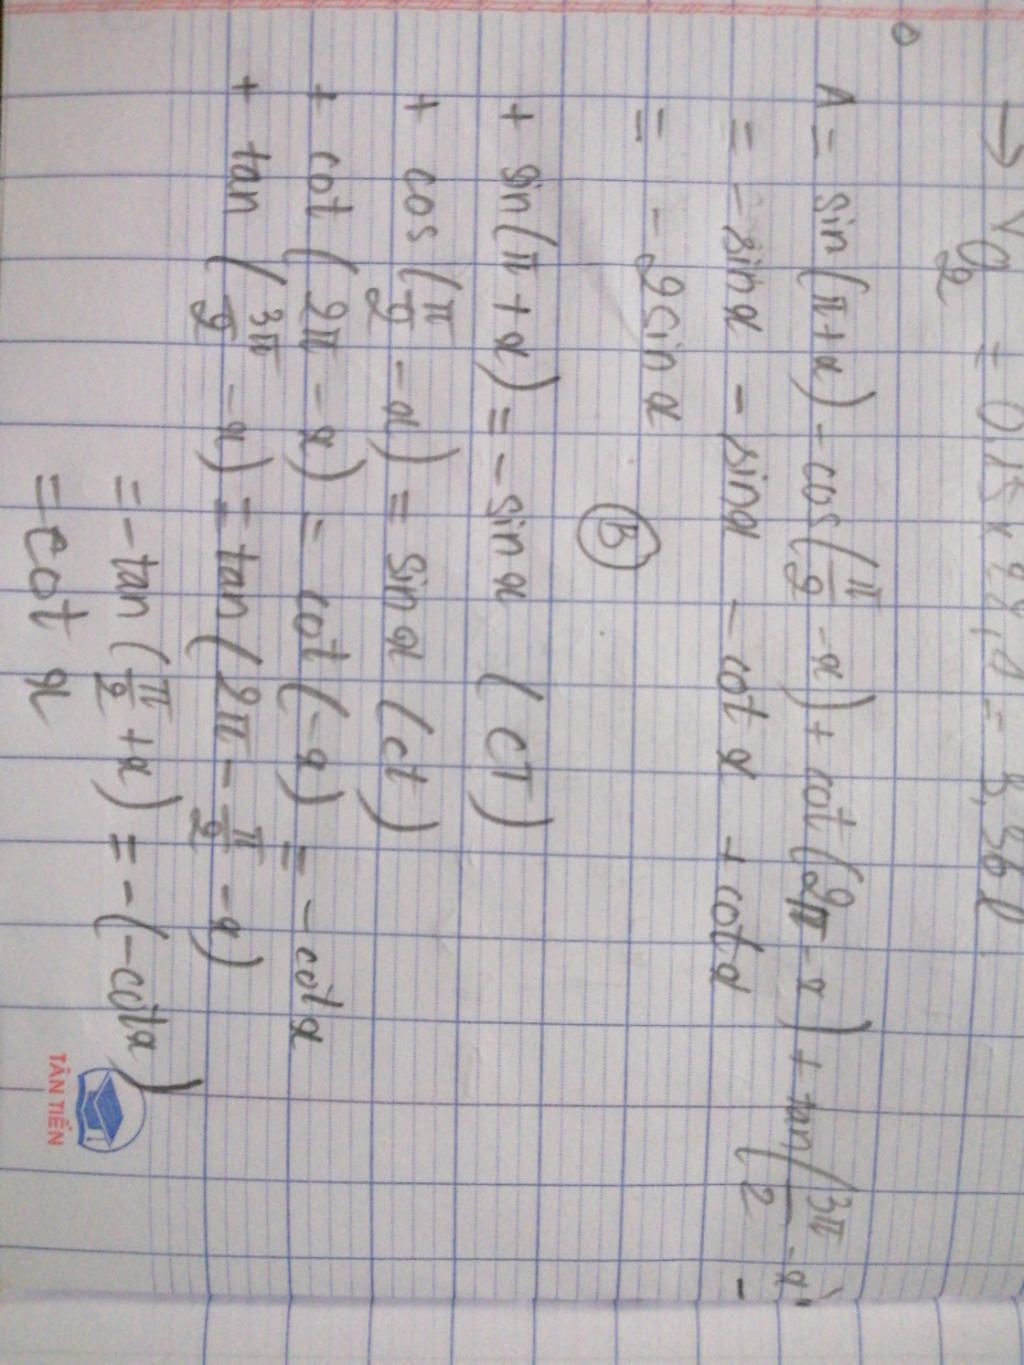 → V_{O_2} = 0,15 x 22,4 = 3,36 l
A = sin(π+α) - cos(π/2 - α) + cot(2π - α) + tan(3π/2 - α)
= -sinα - sinα - cotα + cotα
= -2sinα
(B)
+ sin(π + α) = -sinα (CT)
+ cos(π/2 - α) = sinα (ct)
+ cot(2π - α) = cot(-α) = -cotα
+ tan(3π/2 - α) = tan(2π - π/2 - α)
= -tan(π/2 + α) = -(-cotα)
= cotα
TÂN TIẾN